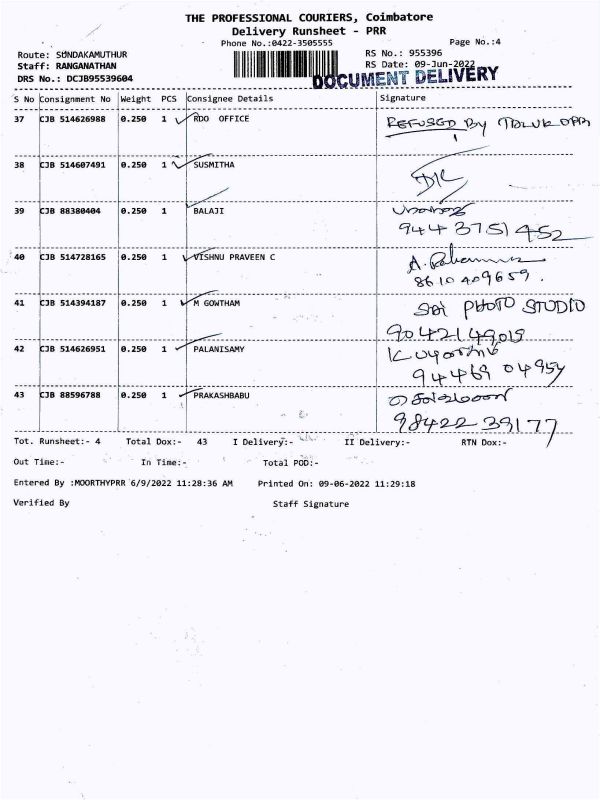 THE PROFESSIONAL COURIERS, Coimbatore
Delivery Runsheet - PRR
Phone No.:0422-3505555
Page No.:4
Route: SUNDAKAMUTHUR
RS No.: 955396
Staff: RANGANATHAN
RS Date: 09-Jun-2022
DRS No.: DCJB95539604
DOCUMENT DELIVERY
S No Consignment No Weight PCS Consignee Details Signature
37 CJB 514626988 0.250 1 RDO OFFICE REFUSED By
38 CJB 514607491 0.250 1 SUSMITHA
39 CJB 88380404 0.250 1 BALAJI
94437 51452
40 CJB 514728165 0.250 1 VISHNU PRAVEEN C
8610409659.
41 CJB 514394187 0.250 1 M GOWTHAM SRI PHOTO STUDIO
9042149019
42 CJB 514626951 0.250 1 PALANISAMY
94469 04954
43 CJB 88596788 0.250 1 PRAKASHBABU
98422 39177
Tot. Runsheet:- 4 Total Dox:- 43 I Delivery:- II Delivery:- RTN Dox:-
Out Time:- In Time:- Total POD:-
Entered By :MOORTHYPRR 6/9/2022 11:28:36 AM Printed On: 09-06-2022 11:29:18
Verified By Staff Signature